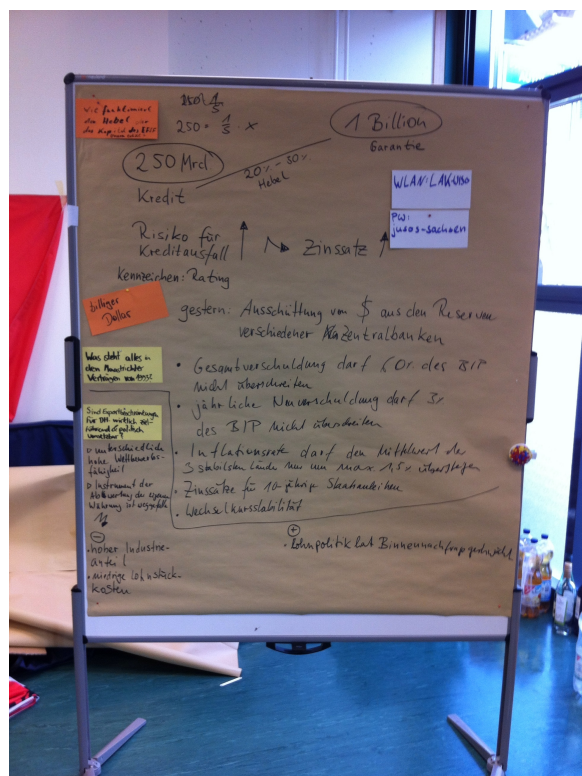 Wie funktioniert
der Hebel
das Kapital des EFSF
250 · 1/5
250 = 1/5 · x
1 Billion
Garantie
250 Mrd
20% - 30%
Hebel
Kredit
WLAN: LAK-
PW:
jusos-sachsen
Risiko für
Kreditausfall
Zinssatz
Kennzeichen: Rating
billiger
Dollar
gestern: Ausschüttung von $ aus den Reserven
verschiedener Zentralbanken
Was steht alles in
den Maastrichter
Verträgen von 1992?
• Gesamtverschuldung darf 60% des BIP
nicht überschreiten
• jährliche Neuverschuldung darf 3%
des BIP nicht überschreiten
• Inflationsrate darf den Mittelwert der
3 stabilsten Länder nur um max 1,5% übersteigen
• Zinssätze für 10-jährige Staatsanleihen
• Wechselkursstabilität
Sind Exportbeschränkungen
für DM wirklich
politisch
▷ unterschiedlich
hohe Wettbewerbs-
fähigkeit
▷ Instrument der
Abwertung der eigenen
Währung ist weggefallen
⊖
• hoher Industrie-
anteil
• niedrige Lohnstück-
kosten
⊕
• Lohnpolitik hat Binnennachfrage geschwächt